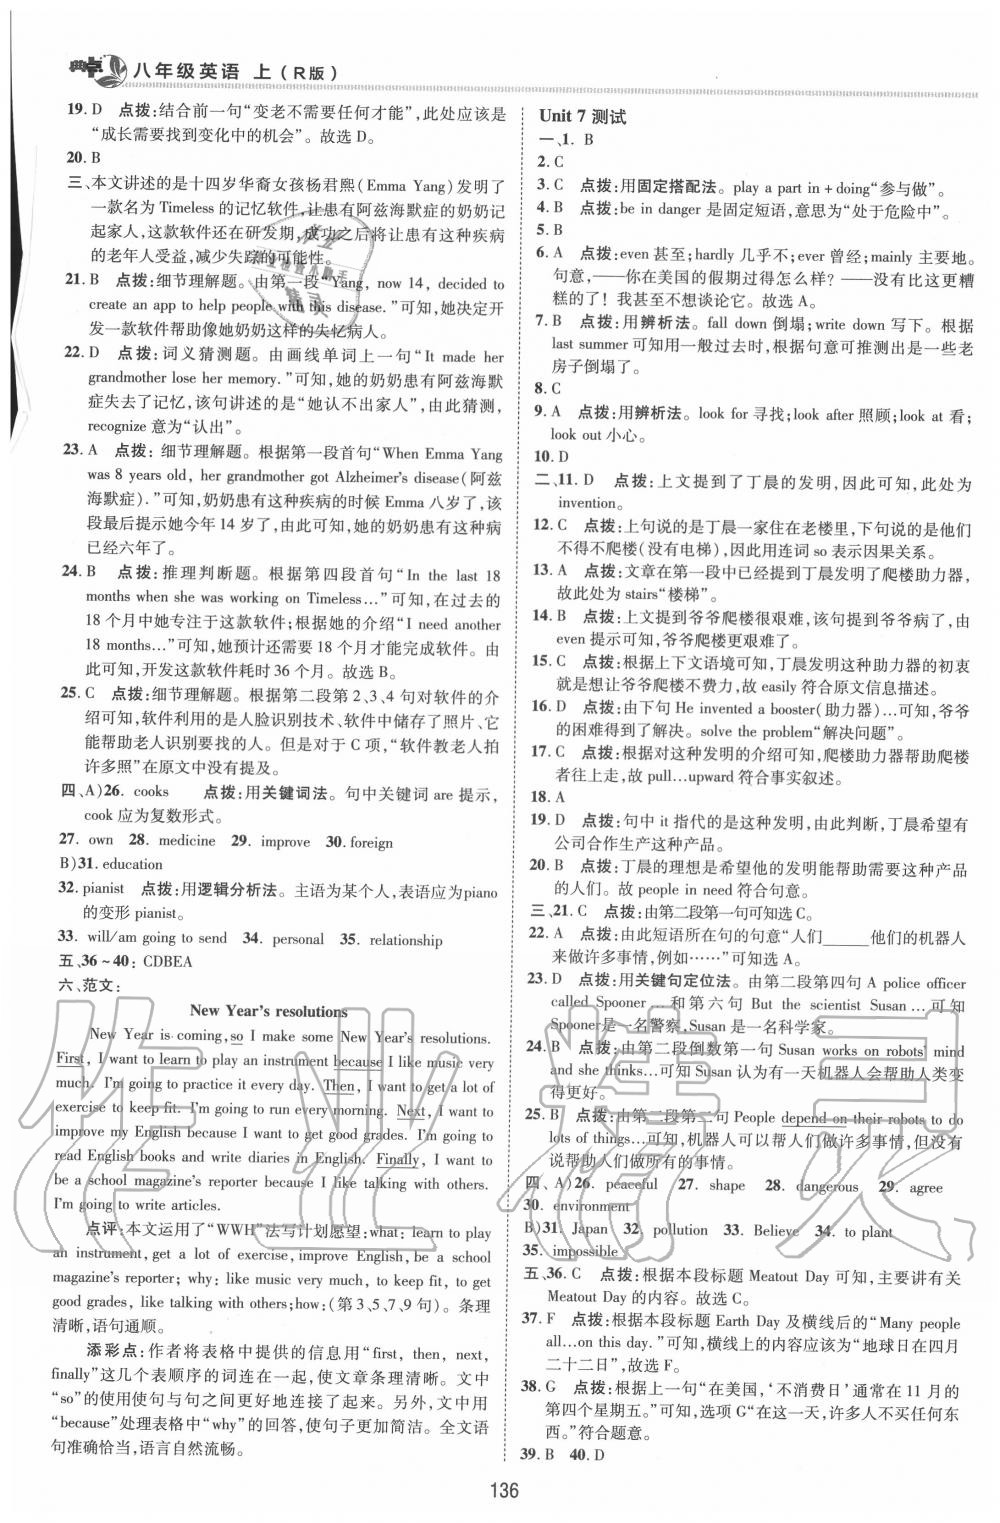 典点 八年级英语 上(R版)
19. D 点拨:结合前一句“变老不需要任何才能”,此处应该是
“成长需要找到变化中的机会”。故选 D。
20. B
三、本文讲述的是十四岁华裔女孩杨君熙(Emma Yang)发明了
一款名为 Timeless 的记忆软件,让患有阿兹海默症的奶奶记
起家人,这款软件还在研发期,成功之后将让患有这种疾病
的老年人受益,减少失踪的可能性。
21. B 点拨:细节理解题。由第一段“Yang, now 14, decided to
create an app to help people with this disease.”可知,她决定开
发一款软件帮助像她奶奶这样的失忆病人。
22. D 点拨:词义猜测题。由画线单词上一句“It made her
grandmother lose her memory.”可知,她的奶奶患有阿兹海默
症失去了记忆,该句讲述的是“她认不出家人”,由此猜测,
recognize 意为“认出”。
23. A 点拨:细节理解题。根据第一段首句“When Emma Yang
was 8 years old, her grandmother got Alzheimer's disease(阿兹
海默症).”可知,奶奶患有这种疾病的时候 Emma 八岁了,该
段最后提示她今年 14 岁了,由此可知,她的奶奶患有这种病
已经六年了。
24. B 点拨:推理判断题。根据第四段首句“In the last 18
months when she was working on Timeless...”可知,在过去的
18 个月中她专注于这款软件;根据她的介绍“I need another
18 months...”可知,她预计还需要 18 个月才能完成软件。由
此可知,开发这款软件耗时 36 个月。故选 B。
25. C 点拨:细节理解题。根据第二段第 2、3、4 句对软件的介
绍可知,软件利用的是人脸识别技术、软件中储存了照片、它
能帮助老人识别要找的人。但是对于 C 项,“软件教老人拍
许多照”在原文中没有提及。
四、A)26. cooks 点拨:用关键词法。句中关键词 are 提示,
cook 应为复数形式。
27. own 28. medicine 29. improve 30. foreign
B)31. education
32. pianist 点拨:用逻辑分析法。主语为某个人,表语应是piano
的变形 pianist。
33. will/am going to send 34. personal 35. relationship
五、36~40:CDBEA
六、范文:
New Year's resolutions
New Year is coming, so I make some New Year's resolutions.
First, I want to learn to play an instrument because I like music very
much. I'm going to practice it every day. Then, I want to get a lot of
exercise to keep fit. I'm going to run every morning. Next, I want to
improve my English because I want to get good grades. I'm going to
read English books and write diaries in English. Finally, I want to
be a school magazine's reporter because I like talking with others.
I'm going to write articles.
点评:本文运用了“WWH”法写计划愿望;what: learn to play
an instrument, get a lot of exercise, improve English, be a school
magazine's reporter; why: like music very much, to keep fit, to get
good grades, like talking with others;how:(第 3、5、7、9 句)。条理
清晰,语句通顺。
添彩点:作者将表格中提供的信息用“first, then, next,
finally”这几个表顺序的词连在一起,使文章条理清晰。文中
“so”的使用使句与句之间更好地连接了起来。另外,文中用
“because”处理表格中“why”的回答,使句子更加简洁。全文语
句准确恰当,语言自然流畅。
Unit 7 测试
一、1. B
2. C
3. C 点拨:用固定搭配法。play a part in+doing“参与做”。
4. B 点拨:be in danger 是固定短语,意思为“处于危险中”。
5. B
6. A 点拨:even 甚至;hardly 几乎不;ever 曾经;mainly 主要地。
句意,——你在美国的假期过得怎么样?——没有比这更糟
糕的了!我甚至不想谈论它。故选 A。
7. B 点拨:用辨析法。fall down 倒塌;write down 写下。根据
last summer 可知用一般过去时,根据句意可推测出是一些老
房子倒塌了。
8. C
9. A 点拨:用辨析法。look for 寻找;look after 照顾;look at 看;
look out 小心。
10. D
二、11. D 点拨:上文提到了丁晨的发明,因此可知,此处为
invention。
12. C 点拨:上句说的是丁晨一家住在老楼里,下句说的是他们
不得不爬楼(没有电梯),因此用连词 so 表示因果关系。
13. A 点拨:文章在第一段中已经提到丁晨发明了爬楼助力器,
故此处为 stairs“楼梯”。
14. B 点拨:上文提到爷爷爬楼很艰难,该句提到爷爷病了,由
even 提示可知,爷爷爬楼更艰难了。
15. C 点拨:根据上下文语境可知,丁晨发明这种助力器的初衷
就是想让爷爷爬楼不费力,故 easily 符合原文信息描述。
16. D 点拨:由下句 He invented a booster(助力器)...可知,爷爷
的困难得到了解决。solve the problem“解决问题”。
17. C 点拨:根据对这种发明的介绍可知,爬楼助力器帮助爬楼
者往上走,故 pull...upward 符合事实叙述。
18. A
19. D 点拨:句中 it 指代的是这种发明,由此判断,丁晨希望有
公司合作生产这种产品。
20. B 点拨:丁晨的理想是希望他的发明能帮助需要这种产品
的人们。故 people in need 符合句意。
三、21. C 点拨:由第二段第一句可知选 C。
22. A 点拨:由此短语所在句的句意“人们______他们的机器人
来做许多事情,例如……”可知选 A。
23. D 点拨:用关键句定位法。由第二段第四句 A police officer
called Spooner ...和第六句 But the scientist Susan...可知
Spooner是一名警察,Susan 是一名科学家。
24. B 点拨:由第二段倒数第一句 Susan works on robots' mind
and she thinks...可知 Susan 认为有一天机器人会帮助人类变
得更好。
25. B 点拨:由第二段第二句 People depend on their robots to do
lots of things...可知,机器人可以帮人们做许多事情,但没有
说帮助人们做所有的事情。
四、A)26. peaceful 27. shape 28. dangerous 29. agree
30. environment
B)31. Japan 32. pollution 33. Believe 34. to plant
35. impossible
五、36. C 点拨:根据本段标题 Meatout Day 可知,主要讲有关
Meatout Day 的内容。故选 C。
37. F 点拨:根据本段标题 Earth Day 及横线后的“Many people
all...on this day.”可知,横线上的内容应为“地球日在四月
二十二日”,故选 F。
38. G 点拨:根据上一句“在美国,‘不消费日’通常在 11 月的
第四个星期五。”可知,选项 G“在这一天,许多人不买任何东
西。”符合题意。
39. B 40. D
136
作业精灵